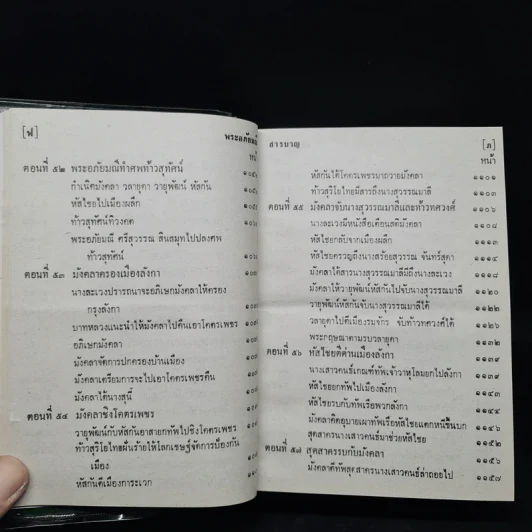 [ฟ]
พระอภัยมณี
หน้า
ตอนที่ ๕๒ พระอภัยมณีทำศพท้าวสุทัศน์
กำเนิดมังคลา วลายุดา วายุพัฒน์ หัสกัน
หัสไชยไปเมืองผลึก
ท้าวสุทัศน์ทิวงคต
พระอภัยมณี ศรีสุวรรณ สินสมุทไปปลงศพ
ท้าวสุทัศน์
ตอนที่ ๕๓ มังคลาครองเมืองลังกา
นางละเวงปรารถนาจะอภิเษกมังคลาให้ครอง
กรุงลังกา
บาทหลวงแนะนำให้มังคลาไปคืนเอาโคตรเพชร
อภิเษกมังคลา
มังคลาจัดการปกครองบ้านเมือง
มังคลาเตรียมการจะไปเอาโคตรเพชรคืน
มังคลาได้นางสุนี
ตอนที่ ๕๔ มังคลาชิงโคตรเพชร
วายุพัฒน์กับหัสกันอาสายกทัพไปชิงโคตรเพชร
ท้าวสุริโยไทฝันร้ายให้โลกเชษฐ์จัดการป้องกัน
เมือง
หัสกันตีเมืองการะเวก
สารบาญ
[ภ]
หน้า
หัสกันได้โคตรเพชรมาถวายมังคลา ๑๑๐๑
ท้าวสุริโยไทยมีสารถึงนางสุวรรณมาลี ๑๑๐๖
ตอนที่ ๕๕ มังคลาจับนางสุวรรณมาลีและท้าวทศวงศ์ ๑๑๐๘
นางละเวงมีหนังสือเตือนสติมังคลา
หัสไชยกลับจากเมืองผลึก ๑๑๑๓
หัสไชยครวญถึงนางสร้อยสุวรรณ จันทร์สุดา ๑๑๑๔
มังคลาได้สารนางสุวรรณมาลีมีถึงนางละเวง ๑๑๑๘
มังคลาให้วายุพัฒน์หัสกันไปจับนางสุวรรณมาลี ๑๑๒๐
วายุพัฒน์หัสกันจับนางสุวรรณมาลีได้ ๑๑๒๓
วลายุดาไปตีเมืองรมจักร จับท้าวทศวงศ์ได้
พระกฤษณาตามรบวลายุดา
ตอนที่ ๕๖ หัสไชยตีด่านเมืองลังกา
นางเสาวคนธ์เกณฑ์ทัพเจ้าวาหุโลมยกไปลังกา
หัสไชยยกทัพไปเมืองลังกา
หัสไชยรบกับทัพเรือพวกลังกา
มังคลาคิดอุบายเผาทัพเรือหัสไชยแตกหนีขึ้นบก
สุดสาครนางเสาวคนธ์มาช่วยหัสไชย ๑๑๕๒
ตอนที่ ๕๗ สุดสาครรบกับมังคลา
มังคลาตีทัพสุดสาครนางเสาวคนธ์ล่าถอยไป ๑๑๕๗